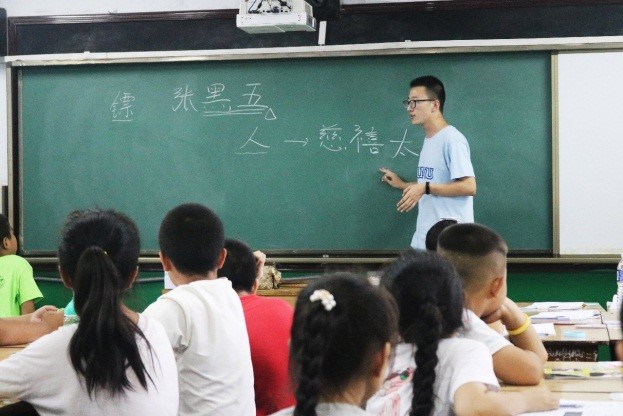 镖 张黑五
人→慈禧太